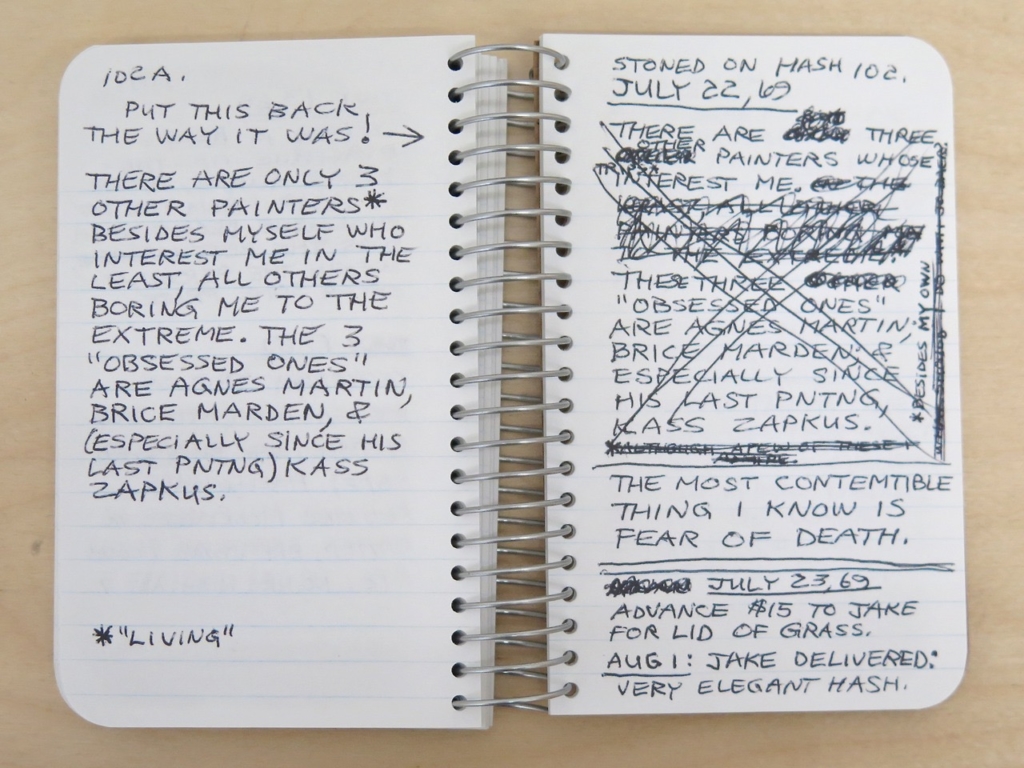 102A.
PUT THIS BACK
THE WAY IT WAS! →
THERE ARE ONLY 3
OTHER PAINTERS*
BESIDES MYSELF WHO
INTEREST ME IN THE
LEAST, ALL OTHERS
BORING ME TO THE
EXTREME. THE 3
"OBSESSED ONES"
ARE AGNES MARTIN,
BRICE MARDEN, &
(ESPECIALLY SINCE HIS
LAST PNTNG) KASS
ZAPKUS.
*"LIVING"
STONED ON HASH 102.
JULY 22, 69
THERE ARE THREE
OTHER
PAINTERS WHOSE
INTEREST ME. THE
TO THE EXTREME.
THESE THREE
"OBSESSED ONES"
ARE AGNES MARTIN;
BRICE MARDEN; &
ESPECIALLY SINCE
HIS LAST PNTNG,
KASS ZAPKUS.
*BESIDES MY OWN
*ALTHOUGH A FEW OF THESE
THE MOST CONTEMTIBLE
THING I KNOW IS
FEAR OF DEATH.
JULY 23, 69
ADVANCE $15 TO JAKE
FOR LID OF GRASS.
AUG 1: JAKE DELIVERED:
VERY ELEGANT HASH.